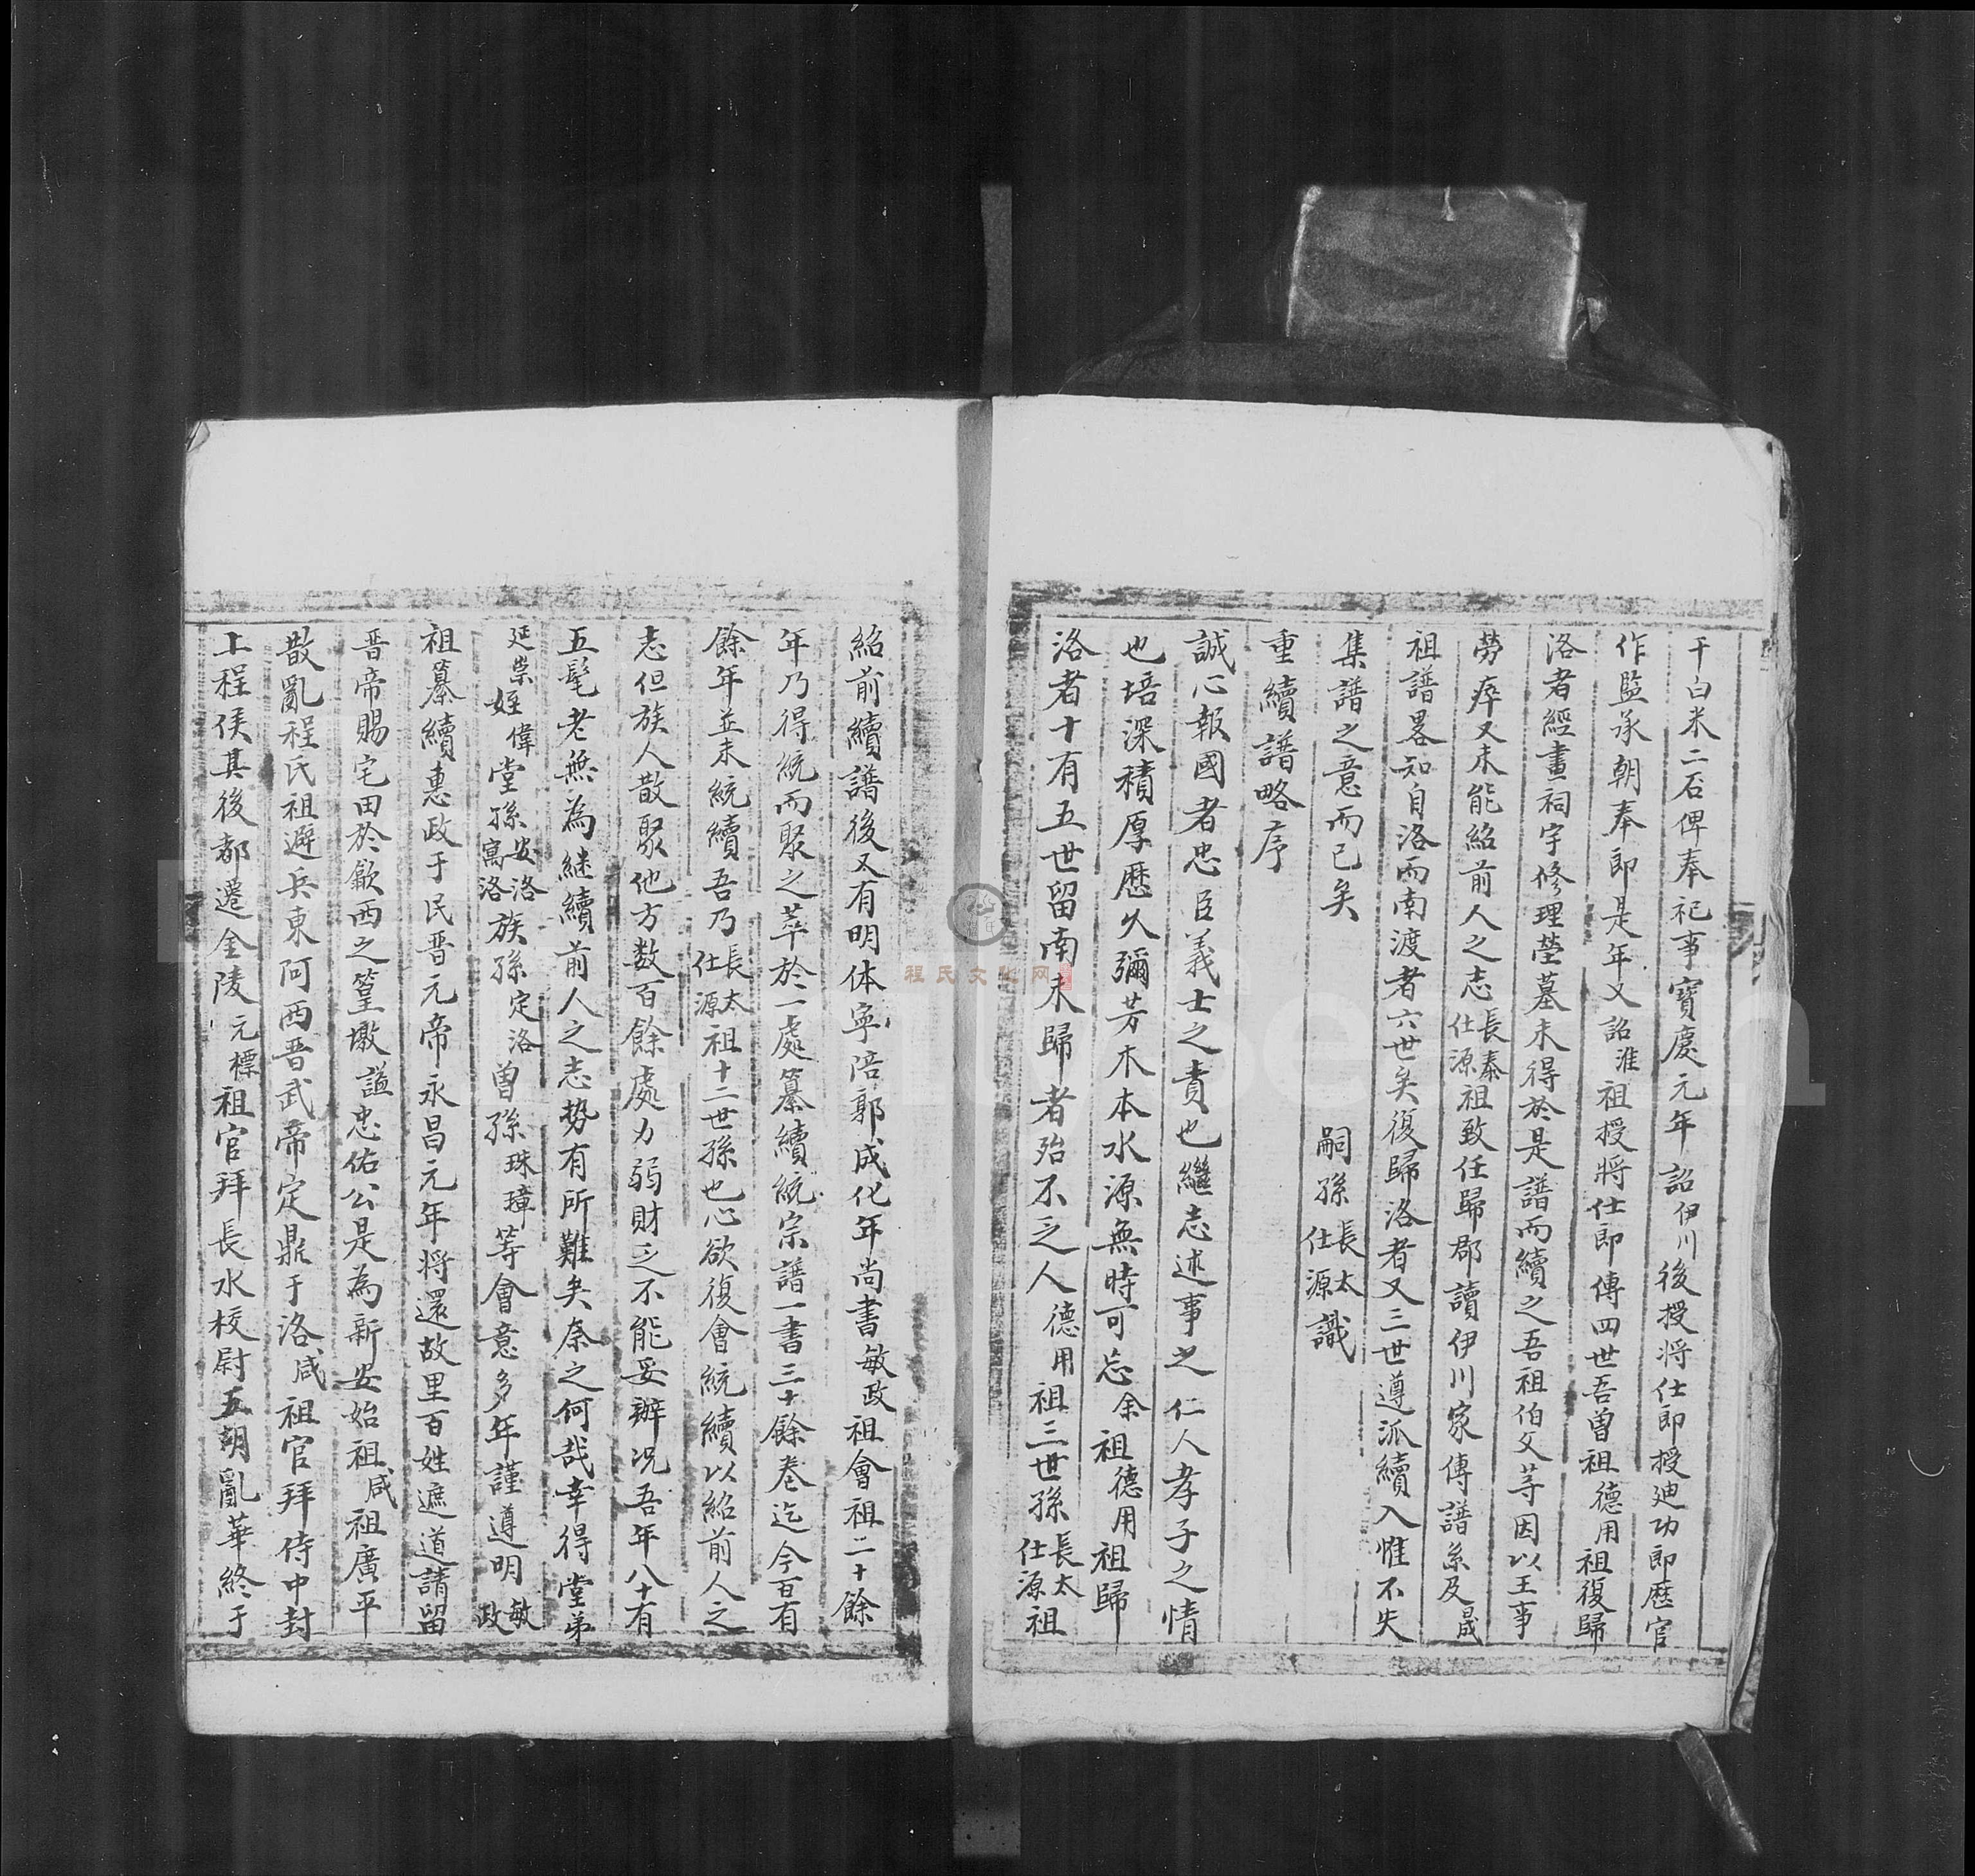 干白米二石俾奉祀事寳慶元年詔伊川後授將仕郎授廸功郎歷官
作監承朝奉郎是年又詔淮祖授將仕郎傳四世吾曽祖德用祖復歸
洛者經畫祠宇修理塋墓未得於是譜而續之吾祖伯父䓁因以王事
勞瘁又未能紹前人之志長泰仕源祖致任歸郡讀伊川家傳譜系及晟
祖譜畧知自洛而南渡者六世矣復歸洛者又三世遵派續入惟不失
集譜之意而已矣
嗣孫長太仕源識
重續譜略序
誠心報國者忠臣義士之責也繼志述事之仁人孝子之情
也培深積厚歷久彌芳木本水源無時可忘余祖德用祖歸
洛者十有五世留南未歸者殆不乏人德用祖三世孫長太仕源祖
紹前續譜後又有明体寧陪郭成化年尚書敏政祖會祖二十餘
年乃得統而聚之萃於一處纂續統宗譜一書三十餘卷迄今百有
餘年並未統續吾乃長太仕源祖十二世孫也心欲復會統續以紹前人之
志但族人散聚他方数百餘處力弱財乏不能妥辦况吾年八十有
五髦老無為継續前人之志势有所難矣奈之何哉幸得堂弟
延崇姪偉堂孫安洛寓洛族孫定洛曽孫珠璋等會意多年謹遵明敏政
祖纂續惠政于民晋元帝永昌元年将還故里百姓遮道請留
晋帝賜宅田於歙西之篁墩謚忠佑公是為新安始祖咸祖廣平
散亂程氏祖避兵東阿西晋武帝定鼎于洛咸祖官拜侍中封
上程侯其後都遷金陵元標祖官拜長水校尉五胡亂華終于
程氏文化网